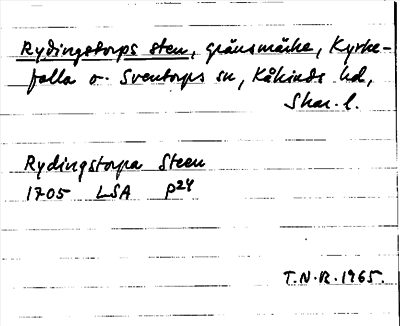 Rydingstorps sten, gränsmärke, Kyrke-
falla o. Sventorps sn, Kåkinds hd,
Skar. l.
Rydingstorpa Steen
1705 LSA P24
T.N.R. 1965.